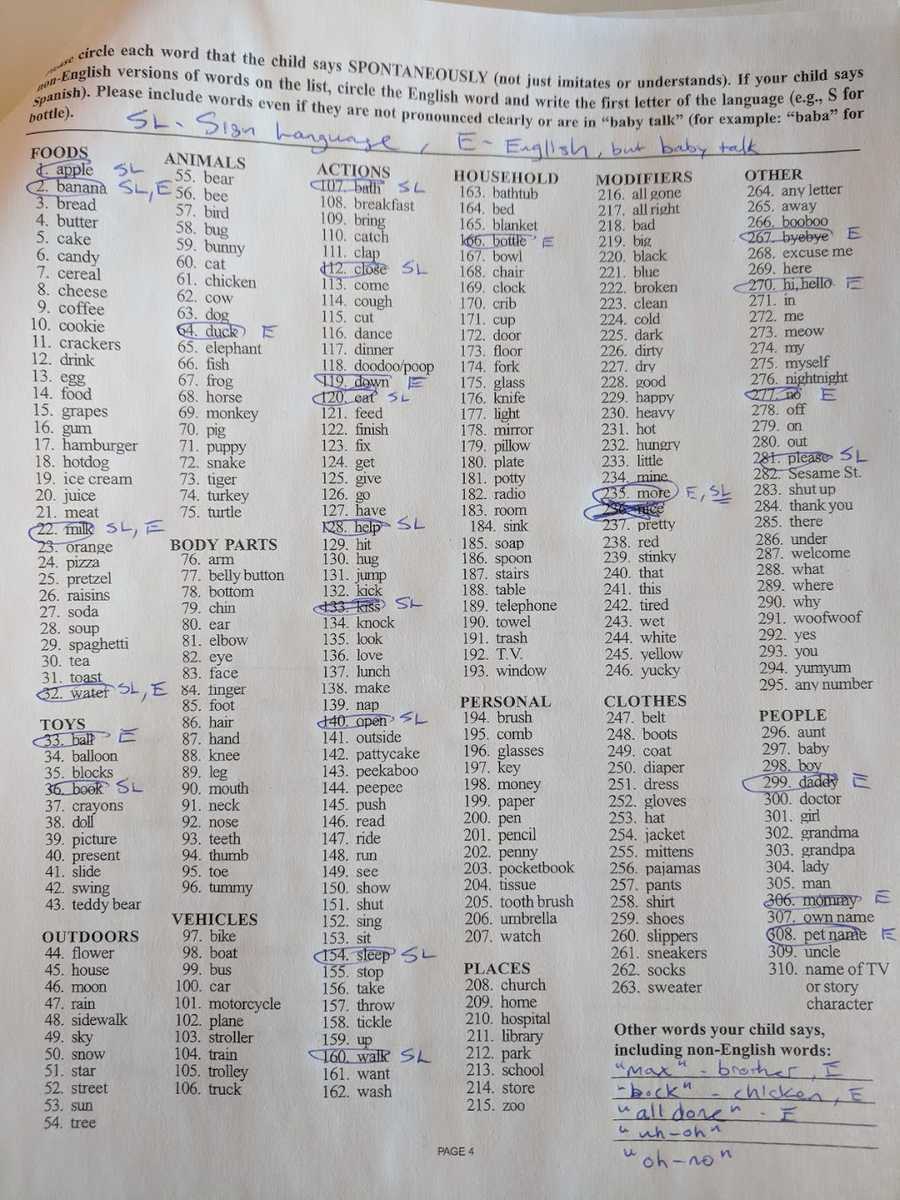 circle each word that the child says SPONTANEOUSLY (not just imitates or understands). If your child says
non-English versions of words on the list, circle the English word and write the first letter of the language (e.g., S for
Spanish). Please include words even if they are not pronounced clearly or are in “baby talk” (for example: “baba” for
bottle).
SL - Sign Language, E - English, but baby talk
FOODS
1. apple SL
2. banana SL, E
3. bread
4. butter
5. cake
6. candy
7. cereal
8. cheese
9. coffee
10. cookie
11. crackers
12. drink
13. egg
14. food
15. grapes
16. gum
17. hamburger
18. hotdog
19. ice cream
20. juice
21. meat
22. milk SL, E
23. orange
24. pizza
25. pretzel
26. raisins
27. soda
28. soup
29. spaghetti
30. tea
31. toast
32. water SL, E
TOYS
33. ball E
34. balloon
35. blocks
36. book SL
37. crayons
38. doll
39. picture
40. present
41. slide
42. swing
43. teddy bear
OUTDOORS
44. flower
45. house
46. moon
47. rain
48. sidewalk
49. sky
50. snow
51. star
52. street
53. sun
54. tree
ANIMALS
55. bear
56. bee
57. bird
58. bug
59. bunny
60. cat
61. chicken
62. cow
63. dog
64. duck E
65. elephant
66. fish
67. frog
68. horse
69. monkey
70. pig
71. puppy
72. snake
73. tiger
74. turkey
75. turtle
BODY PARTS
76. arm
77. belly button
78. bottom
79. chin
80. ear
81. elbow
82. eye
83. face
84. finger
85. foot
86. hair
87. hand
88. knee
89. leg
90. mouth
91. neck
92. nose
93. teeth
94. thumb
95. toe
96. tummy
VEHICLES
97. bike
98. boat
99. bus
100. car
101. motorcycle
102. plane
103. stroller
104. train
105. trolley
106. truck
ACTIONS
107. bath SL
108. breakfast
109. bring
110. catch
111. clap
112. close SL
113. come
114. cough
115. cut
116. dance
117. dinner
118. doodoo/poop
119. down E
120. eat SL
121. feed
122. finish
123. fix
124. get
125. give
126. go
127. have
128. help SL
129. hit
130. hug
131. jump
132. kick
133. kiss SL
134. knock
135. look
136. love
137. lunch
138. make
139. nap
140. open SL
141. outside
142. pattycake
143. peekaboo
144. peepee
145. push
146. read
147. ride
148. run
149. see
150. show
151. shut
152. sing
153. sit
154. sleep SL
155. stop
156. take
157. throw
158. tickle
159. up
160. walk SL
161. want
162. wash
HOUSEHOLD
163. bathtub
164. bed
165. blanket
166. bottle E
167. bowl
168. chair
169. clock
170. crib
171. cup
172. door
173. floor
174. fork
175. glass
176. knife
177. light
178. mirror
179. pillow
180. plate
181. potty
182. radio
183. room
184. sink
185. soap
186. spoon
187. stairs
188. table
189. telephone
190. towel
191. trash
192. T.V.
193. window
PERSONAL
194. brush
195. comb
196. glasses
197. key
198. money
199. paper
200. pen
201. pencil
202. penny
203. pocketbook
204. tissue
205. tooth brush
206. umbrella
207. watch
PLACES
208. church
209. home
210. hospital
211. library
212. park
213. school
214. store
215. zoo
MODIFIERS
216. all gone
217. all right
218. bad
219. big
220. black
221. blue
222. broken
223. clean
224. cold
225. dark
226. dirty
227. dry
228. good
229. happy
230. heavy
231. hot
232. hungry
233. little
234. mine
235. more E, SL
236. nice
237. pretty
238. red
239. stinky
240. that
241. this
242. tired
243. wet
244. white
245. yellow
246. yucky
CLOTHES
247. belt
248. boots
249. coat
250. diaper
251. dress
252. gloves
253. hat
254. jacket
255. mittens
256. pajamas
257. pants
258. shirt
259. shoes
260. slippers
261. sneakers
262. socks
263. sweater
OTHER
264. any letter
265. away
266. booboo
267. byebye E
268. excuse me
269. here
270. hi, hello E
271. in
272. me
273. meow
274. my
275. myself
276. nightnight
277. no E
278. off
279. on
280. out
281. please SL
282. Sesame St.
283. shut up
284. thank you
285. there
286. under
287. welcome
288. what
289. where
290. why
291. woofwoof
292. yes
293. you
294. yumyum
295. any number
PEOPLE
296. aunt
297. baby
298. boy
299. daddy E
300. doctor
301. girl
302. grandma
303. grandpa
304. lady
305. man
306. mommy E
307. own name
308. pet name E
309. uncle
310. name of TV
or story
character
Other words your child says,
including non-English words:
"Max" - brother, E
"bock" - chicken, E
"all done" - E
"uh-oh"
"oh-no"
PAGE 4